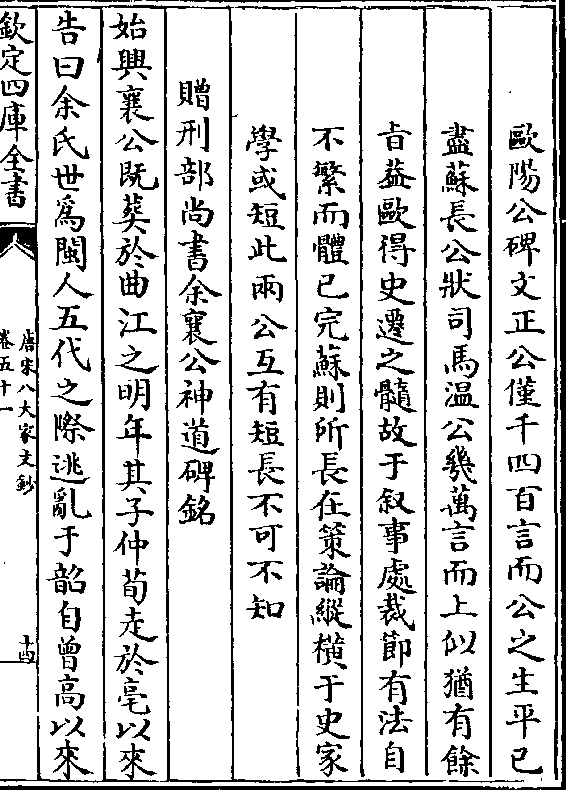 歐陽公碑文正公僅千四百言而公之生平已
盡蘇長公狀司馬温公幾萬言而上似猶有餘
旨葢歐得史遷之髓故于叙事處裁節有法自
不繁而體已完蘇則所長在策論縱橫于史家
學或短此兩公互有短長不可不知
贈刑部尚書余襄公神道碑銘
始興襄公既葬於曲江之明年其子仲荀走於亳以來
告曰余氏世為閩人五代之際逃亂于韶自曾高以來
欽定四庫全書
唐宋八大家文鈔
卷五十一
十四